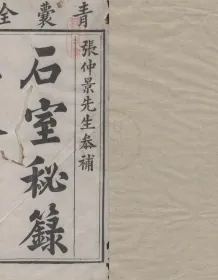 青囊全
張仲景先生叅補
石室秘籙